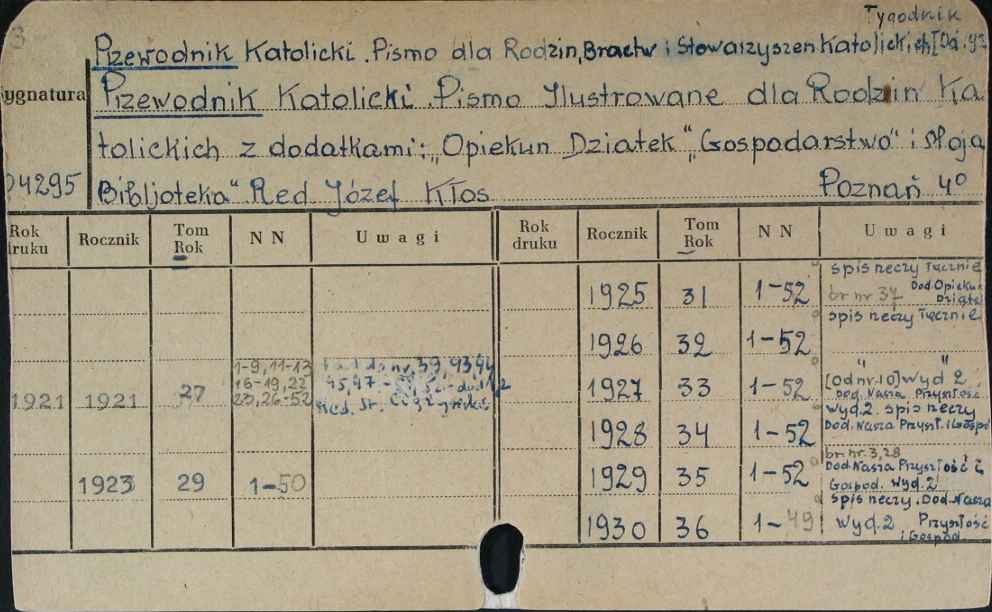 Tygodnik
Pzewodnik Katolicki. Pismo dla Rodzin, Bractw i Stowarzyszeń Katolickich
Sygnatura
Przewodnik Katolicki. Pismo Ilustrowane dla Rodzin Ka
tolickich z dodatkami: „Opiekun Dziatek" „Gospodarstwo" i
04295 Bibljoteka" Red Józef Kłos Poznań 4º
Rok druku Rocznik Tom Rok NN Uwagi Rok druku Rocznik Tom Rok NN Uwagi
1925 31 1-52 spis rzeczy łącznie
br nr 37 Dod. Opiekun Dziatek
1926 32 1-52 spis rzeczy łącznie
1921 1921 27 1-9, 11-13
16-19, 22
23, 26-52
1927 33 1-52 " "
[Od nr. 10] Wyd 2
Dod. Nasza Przyszłość
1928 34 1-52 Wyd. 2. spis rzeczy
Dod. Nasza Przyszł. i Gospo
1923 29 1-50
1929 35 1-52 br nr. 3, 28
Dod Nasza Przyszłość i
Gospod. Wyd. 2
1930 36 1-49 spis rzeczy. Dod. Nasza
Wyd. 2 Przyszłość
i Gospod